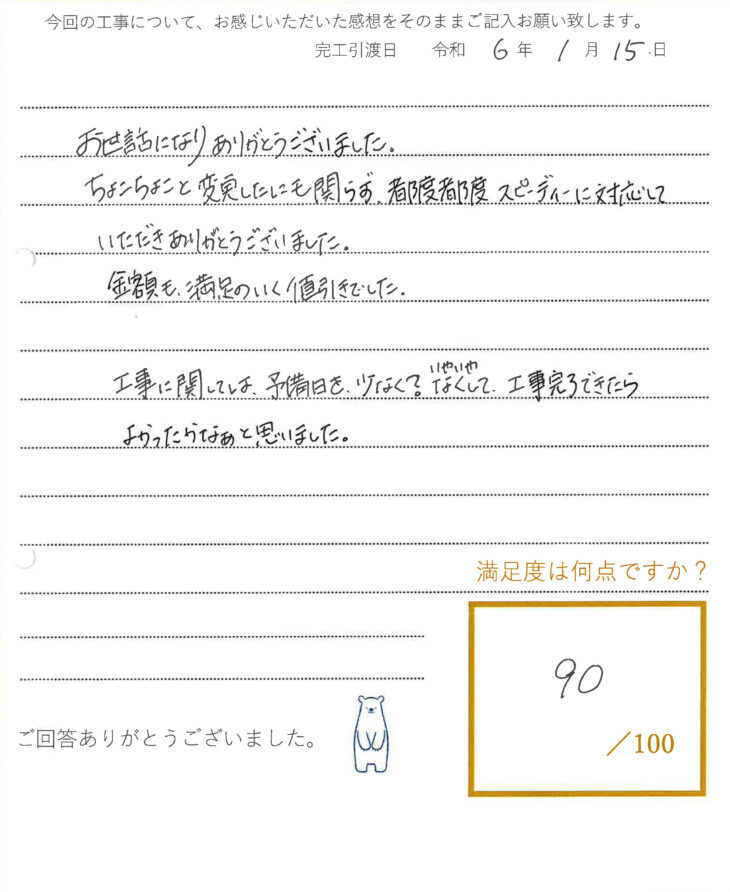 今回の工事について、お感じいただいた感想をそのままご記入お願い致します。
完工引渡日 令和 6 年 1 月 15 日
お世話になりありがとうございました。
ちょこちょこと変更したにも関らず、都度都度スピーディーに対応して
いただきありがとうございました。
金額も、満足のいく値引きでした。
いやいや
工事に関しては、予備日を、少なく?なくして、工事完了できたら
よかったかなぁと思いました。
満足度は何点ですか?
90
/100
ご回答ありがとうございました。